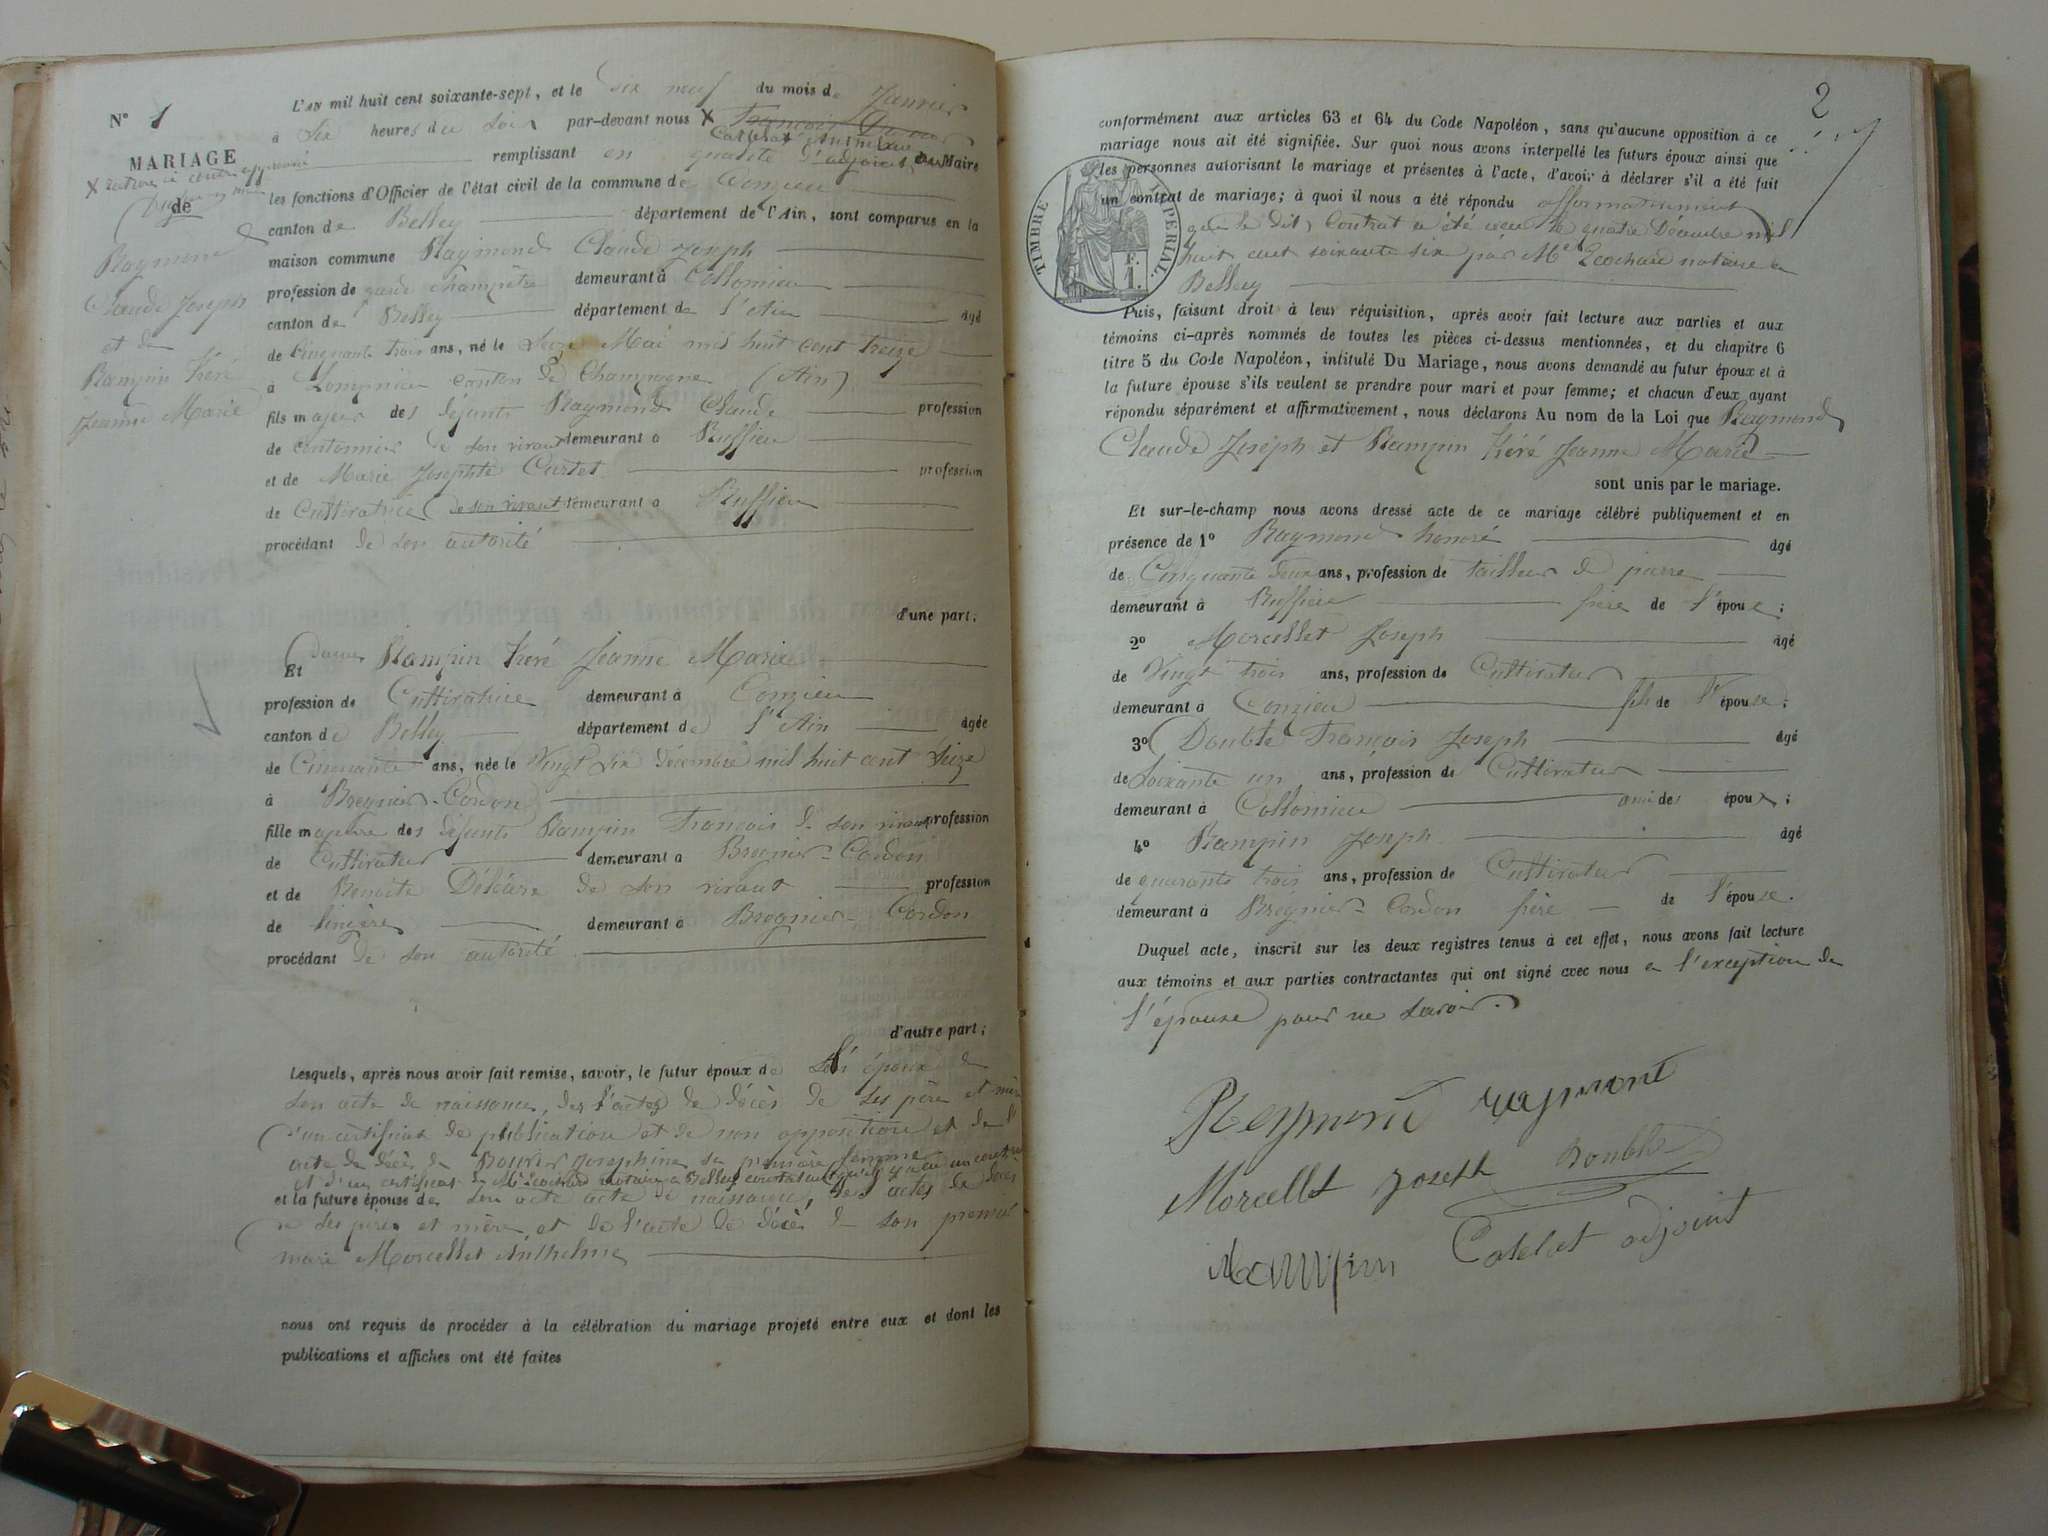 N° 1
MARIAGE
de
Raymond
Claude Joseph
et de
Rampin Féré
Jeanne Marie
L'AN mil huit cent soixante-sept, et le dix neuf du mois de Janvier
à Six heures du Soir par-devant nous X
remplissant en qualité d'adjoint du Maire
les fonctions d'Officier de l'état civil de la commune de Conzieu
canton de Belley département de l'Ain, sont comparus en la
maison commune Raymond Claude Joseph
profession de garde champêtre demeurant à Collomieu
canton de Belley département de l'Ain âgé
de Cinquante trois ans, né le Seize Mai mil huit cent treize
à Lompnieu canton de Champagne (Ain)
fils majeur des défunts Raymond Claude profession
de cantonnier de son vivant demeurant à Ruffieu
et de Marie Josephte Cartet profession
de Cultivatrice de son vivant demeurant à Ruffieu
procédant de son autorité
d'une part;
Et Dame Rampin Féré Jeanne Marie
profession de Cultivatrice demeurant à Conzieu
canton de Belley département de l'Ain âgée
de Cinquante ans, née le Vingt Six Décembre mil huit cent Seize
à Bregnier-Cordon
fille majeure des défunts Rampin François de son vivant profession
de Cultivateur demeurant à Bregnier-Cordon
et de Benoite Déléare de son vivant profession
de lingère demeurant à Bregnier-Cordon
procédant de son autorité
d'autre part;
Lesquels, après nous avoir fait remise, savoir, le futur époux de
son acte de naissance, des actes de décès de ses père et mère
d'un certificat de publication et de non opposition et de l'
acte de décès de Josephine sa première femme
et d'un certificat de Me notaire à Belley
et la future épouse de son acte acte de naissance, des actes de décès
de ses père et mère et de l'acte de décès de son premier
mari Morcellet Anthelme
nous ont requis de procéder à la célébration du mariage projeté entre eux et dont les
publications et affiches ont été faites
2
conformément aux articles 63 et 64 du Code Napoléon, sans qu'aucune opposition à ce
mariage nous ait été signifiée. Sur quoi nous avons interpellé les futurs époux ainsi que
les personnes autorisant le mariage et présentes à l'acte, d'avoir à déclarer s'il a été fait
un contrat de mariage; à quoi il nous a été répondu affirmativement
que le dit Contrat a été reçu le quatre Décembre mil
huit cent soixante six par Me notaire à
Belley
TIMBRE IMPERIAL.
F.
1.
Puis, faisant droit à leur réquisition, après avoir fait lecture aux parties et aux
témoins ci-après nommés de toutes les pièces ci-dessus mentionnées, et du chapitre 6
titre 5 du Code Napoléon, intitulé Du Mariage, nous avons demandé au futur époux et à
la future épouse s'ils veulent se prendre pour mari et pour femme; et chacun d'eux ayant
répondu séparément et affirmativement, nous déclarons Au nom de la Loi que Raymond
Claude Joseph et Rampin Féré Jeanne Marie
sont unis par le mariage.
Et sur-le-champ nous avons dressé acte de ce mariage célébré publiquement et en
présence de 1° Raymond honoré âgé
de Cinquante deux ans, profession de tailleur de pierre
demeurant à Ruffieu frère de l'époux;
2° Morcellet Joseph âgé
de Vingt trois ans, profession de Cultivateur
demeurant à Conzieu fils de l'épouse;
3° Double François Joseph âgé
de Soixante un ans, profession de Cultivateur
demeurant à Collomieu ami des époux;
4° Rampin Joseph âgé
de quarante trois ans, profession de Cultivateur
demeurant à Brégnier-Cordon frère de l'épouse.
Duquel acte, inscrit sur les deux registres tenus à cet effet, nous avons fait lecture
aux témoins et aux parties contractantes qui ont signé avec nous à l'exception de
l'épouse pour ne savoir.
Reymond raymond
Morcellet Joseph Double
Rampin Catelat adjoint